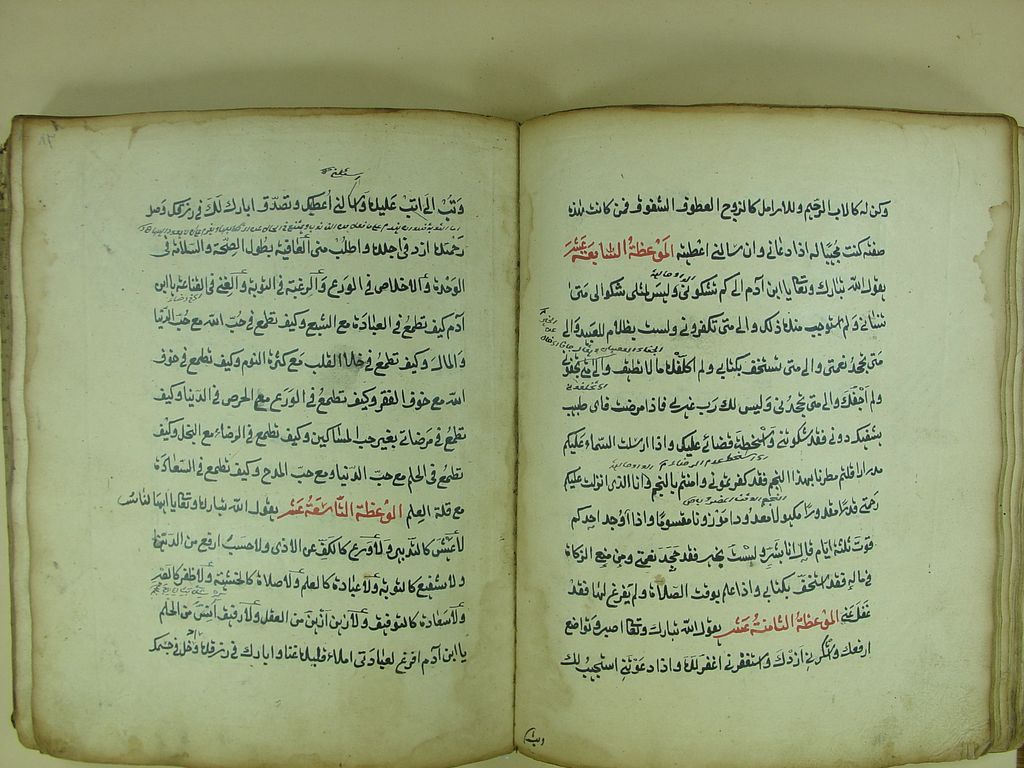 وكن له كالاب الرحيم وللارامل كالزوج العطوف الشفوف فمن كانت هذه
صفته كنت مجيبا له اذا دعاني وان سالني اعطيته الموعظة السابعة عشر
يقول الله تبارك وتعالى يا ابن آدم الى كم تشكوني وليس مثلي شكوا الى متى
تنساني ولم استوجب منك ذلك والى متى تكفرني ولست بظلام للعبيد والى
متى تجحد نعمتي والى متى تستخف بكتابي ولم اكلفك ما لا تطيق والى متى تجفوني
ولم اجفك والى متى تجحدني وليس لك رب غيري فاذا مرضت فاي طبيب
يشفيك دوني فقد شكوتني وسخطت قضائي عليك واذا ارسلت السماء عليكم
مدرارا قلتم مطرنا بهذا النجم فقد كفرتموني وامنتم بالنجم وانا الذي انزلت عليكم
رحمتي قدرا مقدورا مكيولا معدودا موزونا مقسوما واذا اوجد احدكم
قوت ثلثة ايام قال انا بشر ولست بخير فقد جحد نعمتي ومن منع الزكاة
في ماله فقد استخف بكتابي واذا علم بوقت الصلاة ولم يفرغ لها فقد
غفل عني الموعظة الثامنة عشر يقول الله تبارك وتعالى اصبر وتواضع
ارفعك واشكرني ازدك واستغفرني اغفر لك واذا دعوتني استجيب لك
وتب الي اتب عليك واسالني أعطيك وتصدق ابارك لك في رزقك وصل
رحمك ازد في اجلك واطلب مني العافية بطول الصحة والسلامة في
الوحدة والاخلاص في الورع والرغبة في التوبة والغنى في القناعة يا ابن
آدم كيف تطمع في العبادة مع الشبع وكيف تطمع في حب الله مع حب الدنيا
والمال وكيف تطمع في جلاء القلب مع كثرة النوم وكيف تطمع في خوف
الله مع خوف الفقر وكيف تطمع في الورع مع الحرص في الدنيا وكيف
تطمع في مرضاتي بغير حب المساكين وكيف تطمع في الرضاء مع البخل وكيف
تطمع في الحلم مع حب الدنيا ومع حب المدح وكيف تطمع في السعادة
مع قلة العلم الموعظة التاسعة عشر يقول الله تبارك وتعالى ايها الناس
لا عيش كالتدبير ولا ورع كالكف عن الاذى ولا حسب ارفع من الادب
ولا شفيع كالتوبة ولا عبادة كالعلم ولا صلاة كالخشية ولا ظفر كالصبر
ولا سعادة كالتوفيق ولا زين ازين من العقل ولا رفيق آنس من الحلم
يا ابن آدم افرغ لعبادتي املاء قلبك غنا وابارك في رزقك واحل في جسمك